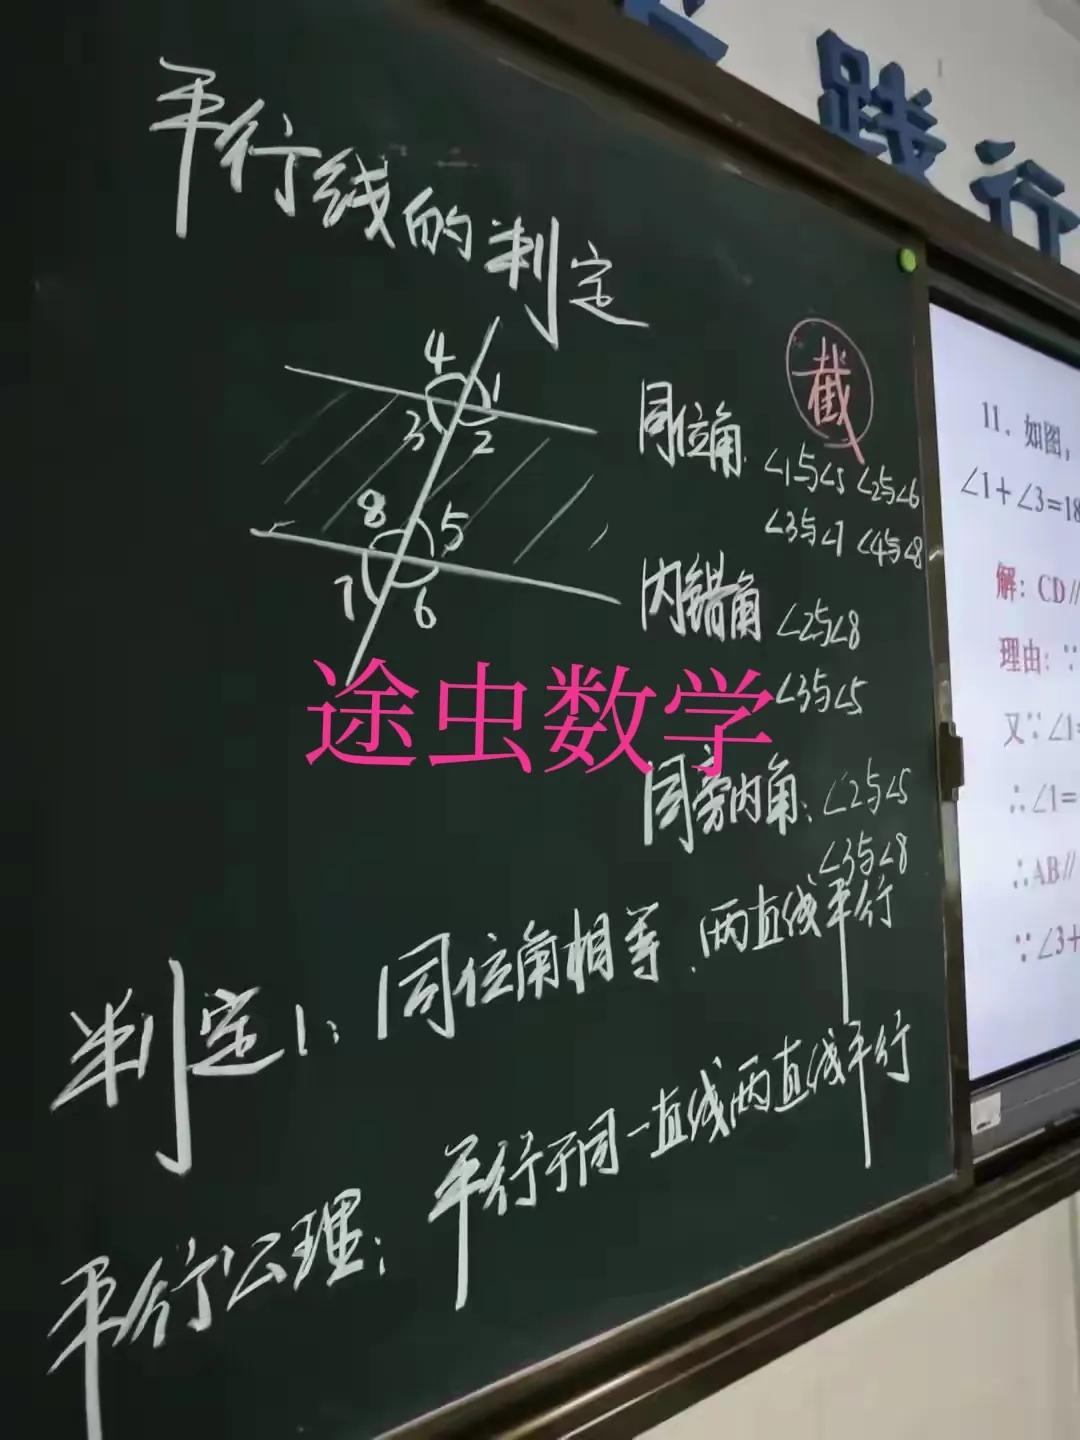 践行
平行线的判定
4
1
3
2
8
5
7
6
截
同位角 ∠1与∠5 ∠2与∠6
∠3与∠7 ∠4与∠8
内错角 ∠2与∠8
∠3与∠5
途虫数学
同旁内角: ∠2与∠5
∠3与∠8
判定1: 同位角相等,两直线平行
平行公理: 平行于同一直线两直线平行
11. 如图,
∠1+∠3=18
解: CD//
理由: ∵
又∵∠1=
∴∠1=
∴AB//
∵∠3+